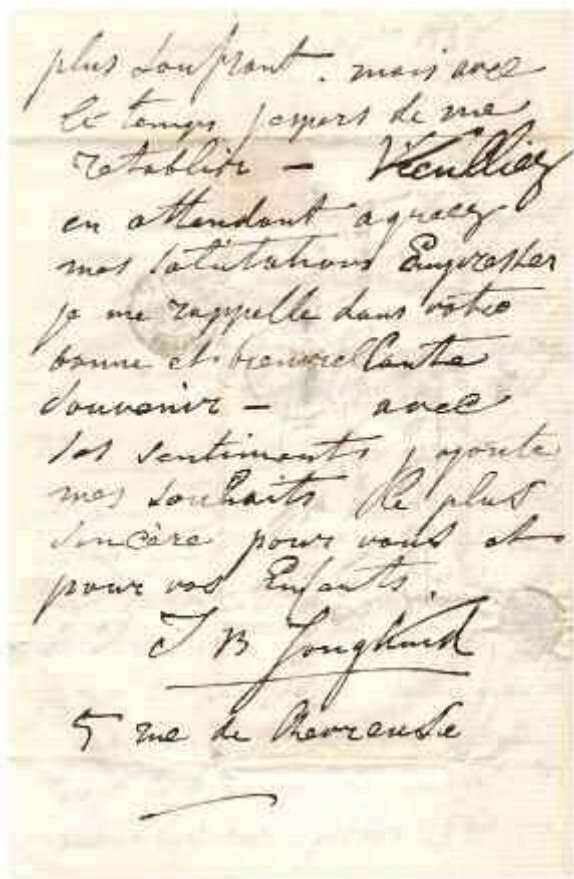 plus soufrant. mais avec
le temps j'espers de me
retablir – Veeulliez
en attendant agreez
mes salutations Empresser
je me rappelle dans votre
bonne et bienveillante
souvenir – avec
ses sentiments j'ajoute
mes souhaits le plus
sincère pour vous et
pour vos Enfants.
J B Jongkind
5 rue de Chevreuse